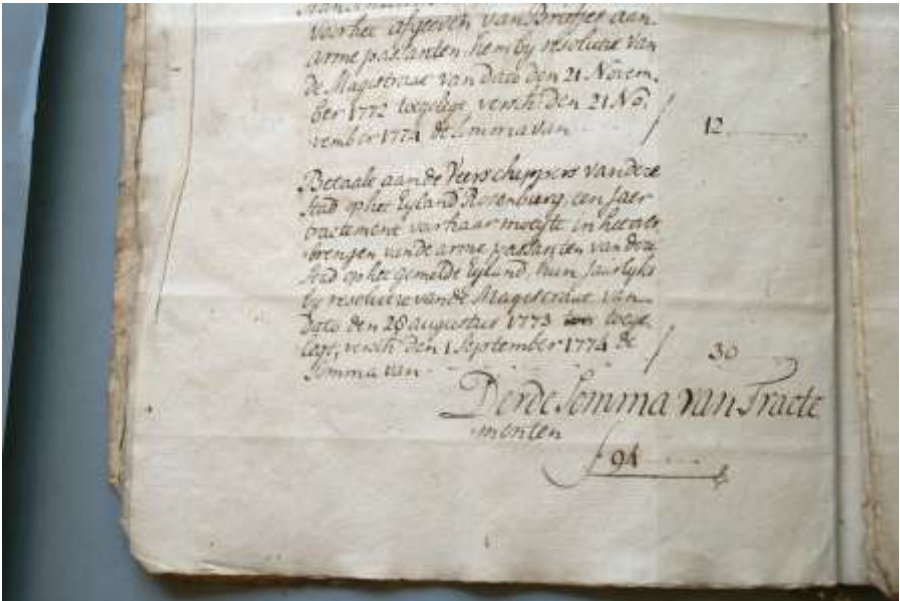 voor het afgeven van Briefjes aan
arme passanten hem by resolutie van
de Magistraat van dato den 21 Novem„
ber 1772 toegelegt, versch: den 21 No„
vember 1774 de Somma van / 12
Betaalt aan de Veerschippers van deze
Stad op het Eyland Rosenburg een Jaer
tractement voor haar moeyte in het over
brengen van de arme passanten van deze
Stad op het gemelde Eyland, hun Jaarlyks
by resolutie van de Magistraat van
Dato den 28 augustus 1773 toege„
legt, versch: den 1 September 1774 de
Somma van / 30
Derde Somma van Tracte
menten
f 94